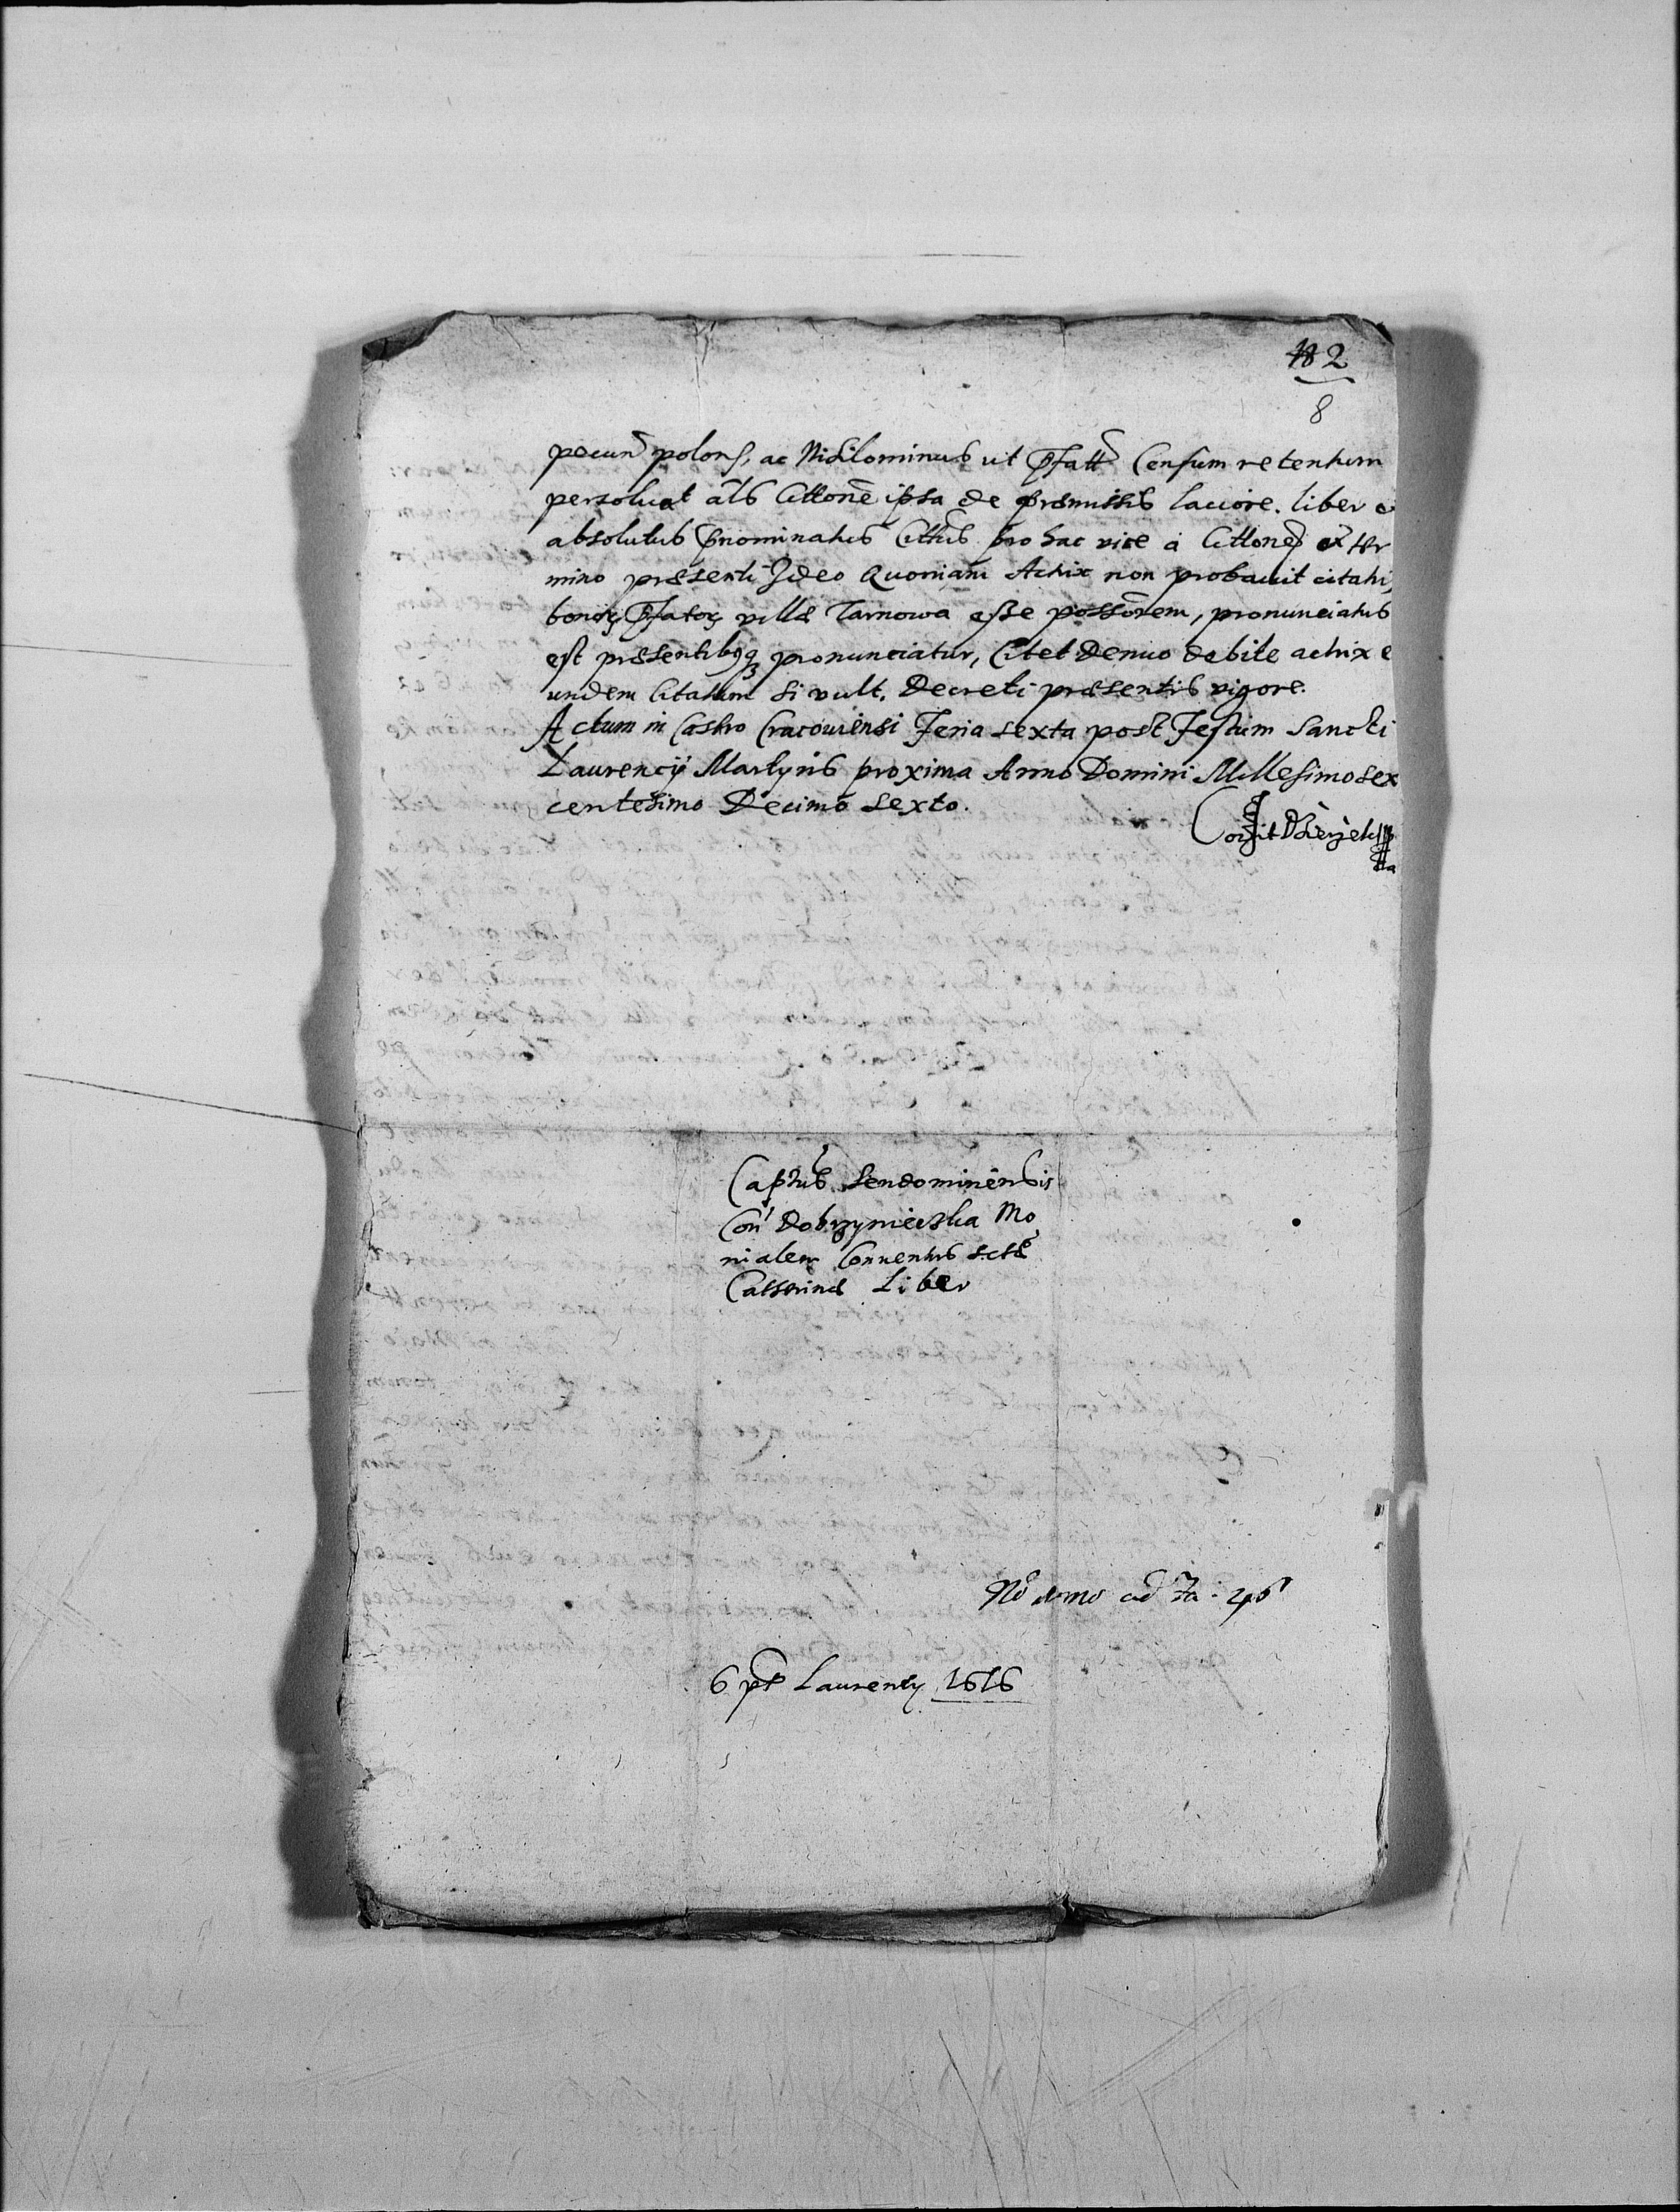 2
8
pecun polon, ac Nihilominus ut Pfatt Censum retentum
persoluat als Cittone ipsa de præmissis laciore. liber e
absolutus Pnominatus Cittus pro hac vice à Cittone ex ter
mino præsenti Ideo Quoniam Actrix non probauit citati
bonor Pfator villæ Tarnowa esse possorem, pronunciatus
est præsentibusq pronunciatur, Citet denuo debite actrix e
undem Citatum si vult. Decreti præsentis vigore.
Actum in Castro Cracouiensi Feria sexta post Festum Sancti
Laurencij Martyris proxima Anno Domini Millesimo sex
centesimo Decimo sexto.
Corrit
Captus Sendominensis
Con Dobrzyniecka Mo
nialem Conuentus sctæ
Catherinæ Liber
No ad
6 pt Laurenty 1616